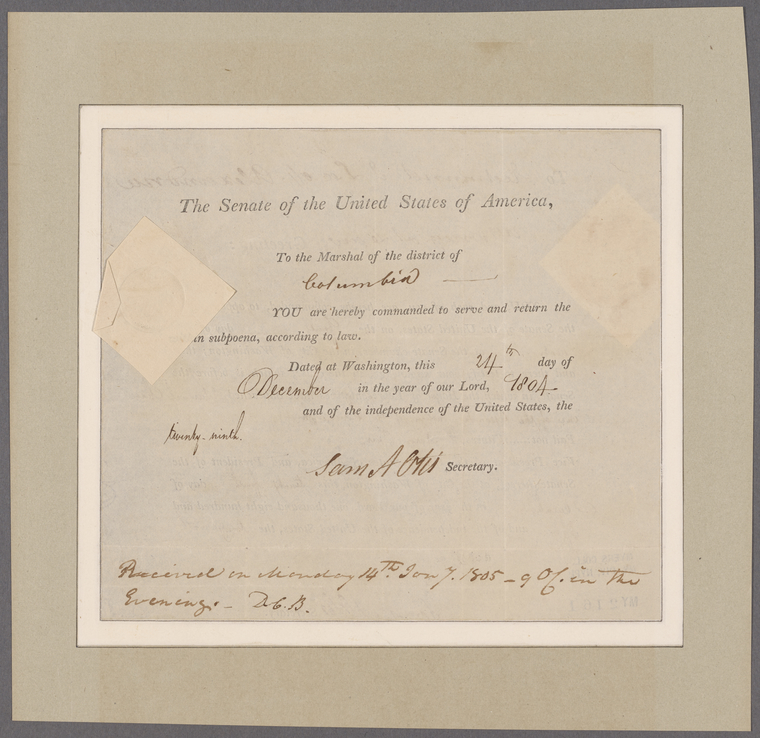 The Senate of the United States of America,
To the Marshal of the district of
Columbia
YOU are hereby commanded to serve and return the
in subpoena, according to law.
Dated at Washington, this 24th day of
December in the year of our Lord, 1804
and of the independence of the United States, the
twenty-ninth.
Sam A Otis Secretary.
Received on Monday 14th. Jany. 1805 — 9 O'C. in the
Evening. — D.C.B.